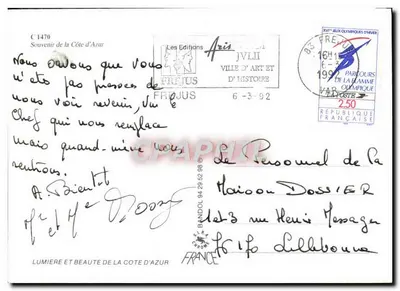 C 1470
Souvenir de la Côte d'Azur
Nous savons que vous
n'etes pas presses de
nous voir revenir, vu le
Chef qui nous remplace
mais quand-même nous
rentrons.
A Bientot
Mr et Mme
Les Editions Aris
FREJUS
JVLII
VILLE D'ART ET
D'HISTOIRE
FREJUS 6-3-92
83 FREJUS
16H
6-3
1992
VAR
XVIes JEUX OLYMPIQUES D'HIVER
PARCOURS
DE LA FLAMME
OLYMPIQUE
LA POSTE
2,50
REPUBLIQUE
FRANÇAISE
Le Personnel de la
Maison DOSSIER
1 et 3 rue Henri Messager
76170 Lillebonne
BANDOL 94 29 52 98
FRANCE
LUMIERE ET BEAUTE DE LA COTE D'AZUR